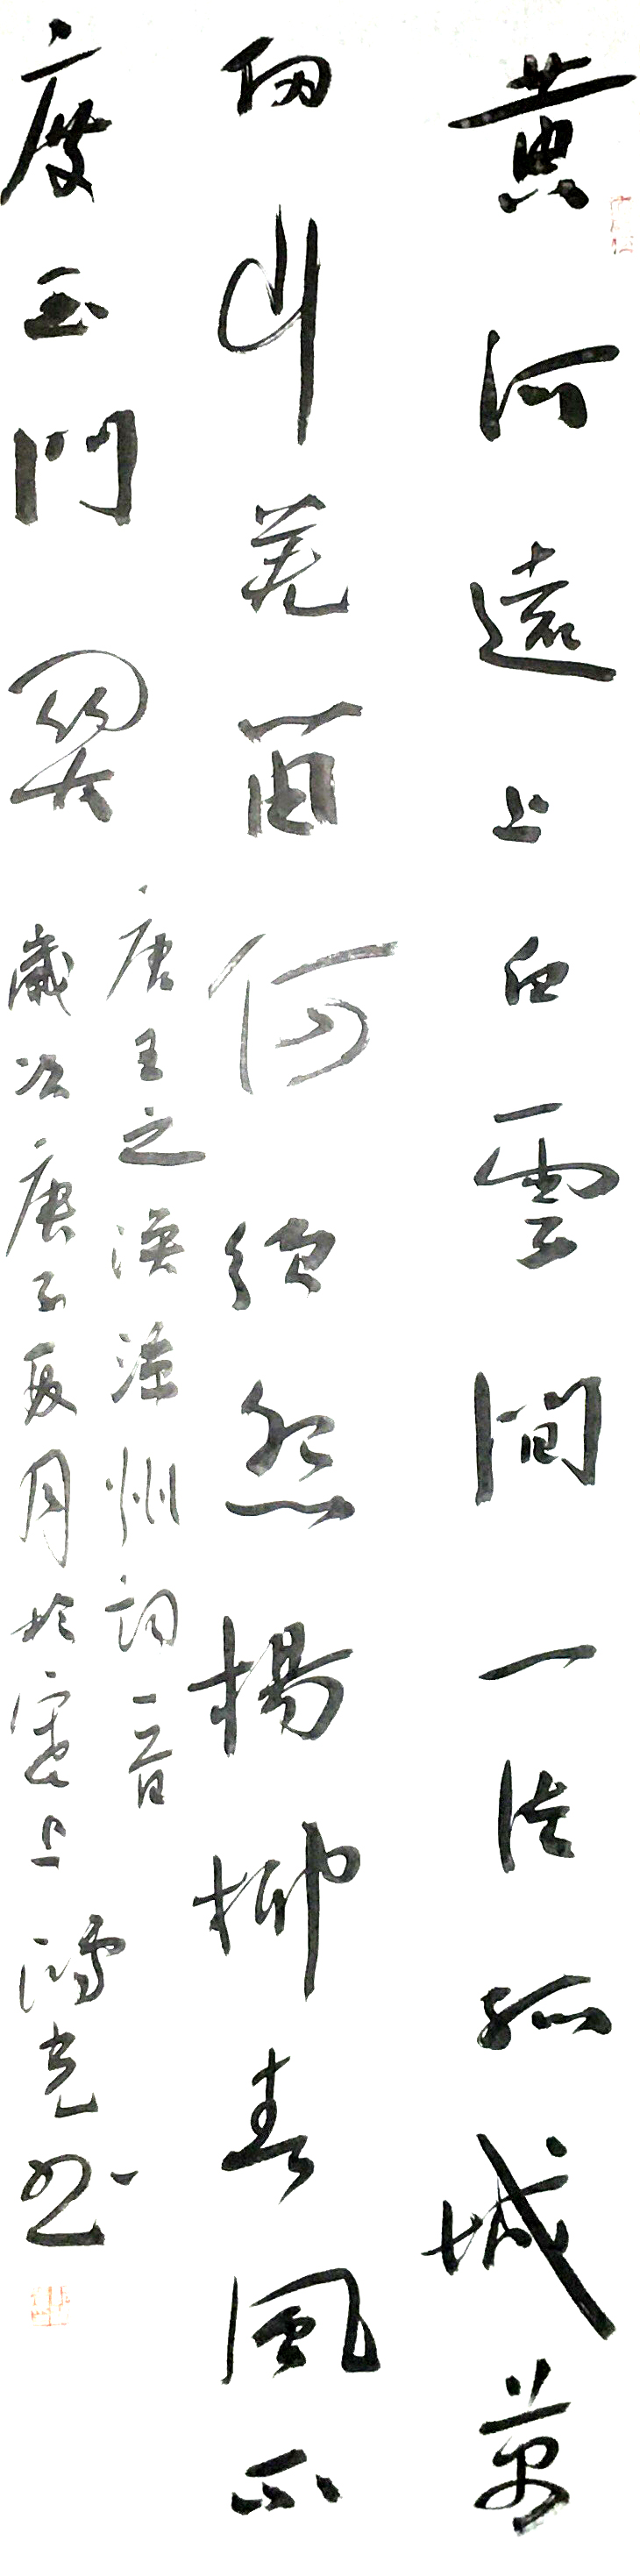 黄河遠上白雲間一片孤城萬
仞山羌笛何須怨楊柳春風不
度玉門關
唐王之渙涼州詞一首
歲次庚子夏月於塞上鴻光书